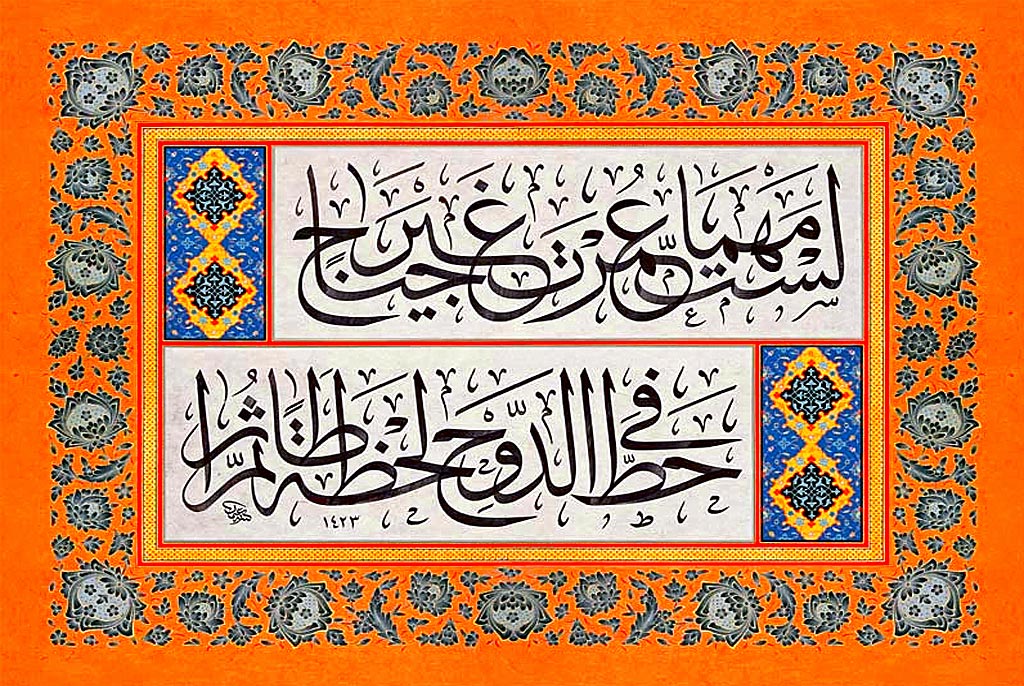 لَسْتَ مَهْمَا عُمِّرْتَ غَيْرَ جَنَاحٍ
حَطَّ فِي الدَّوْحِ لَحْظَةً ثُمَّ طَارَا
١٤٢٣